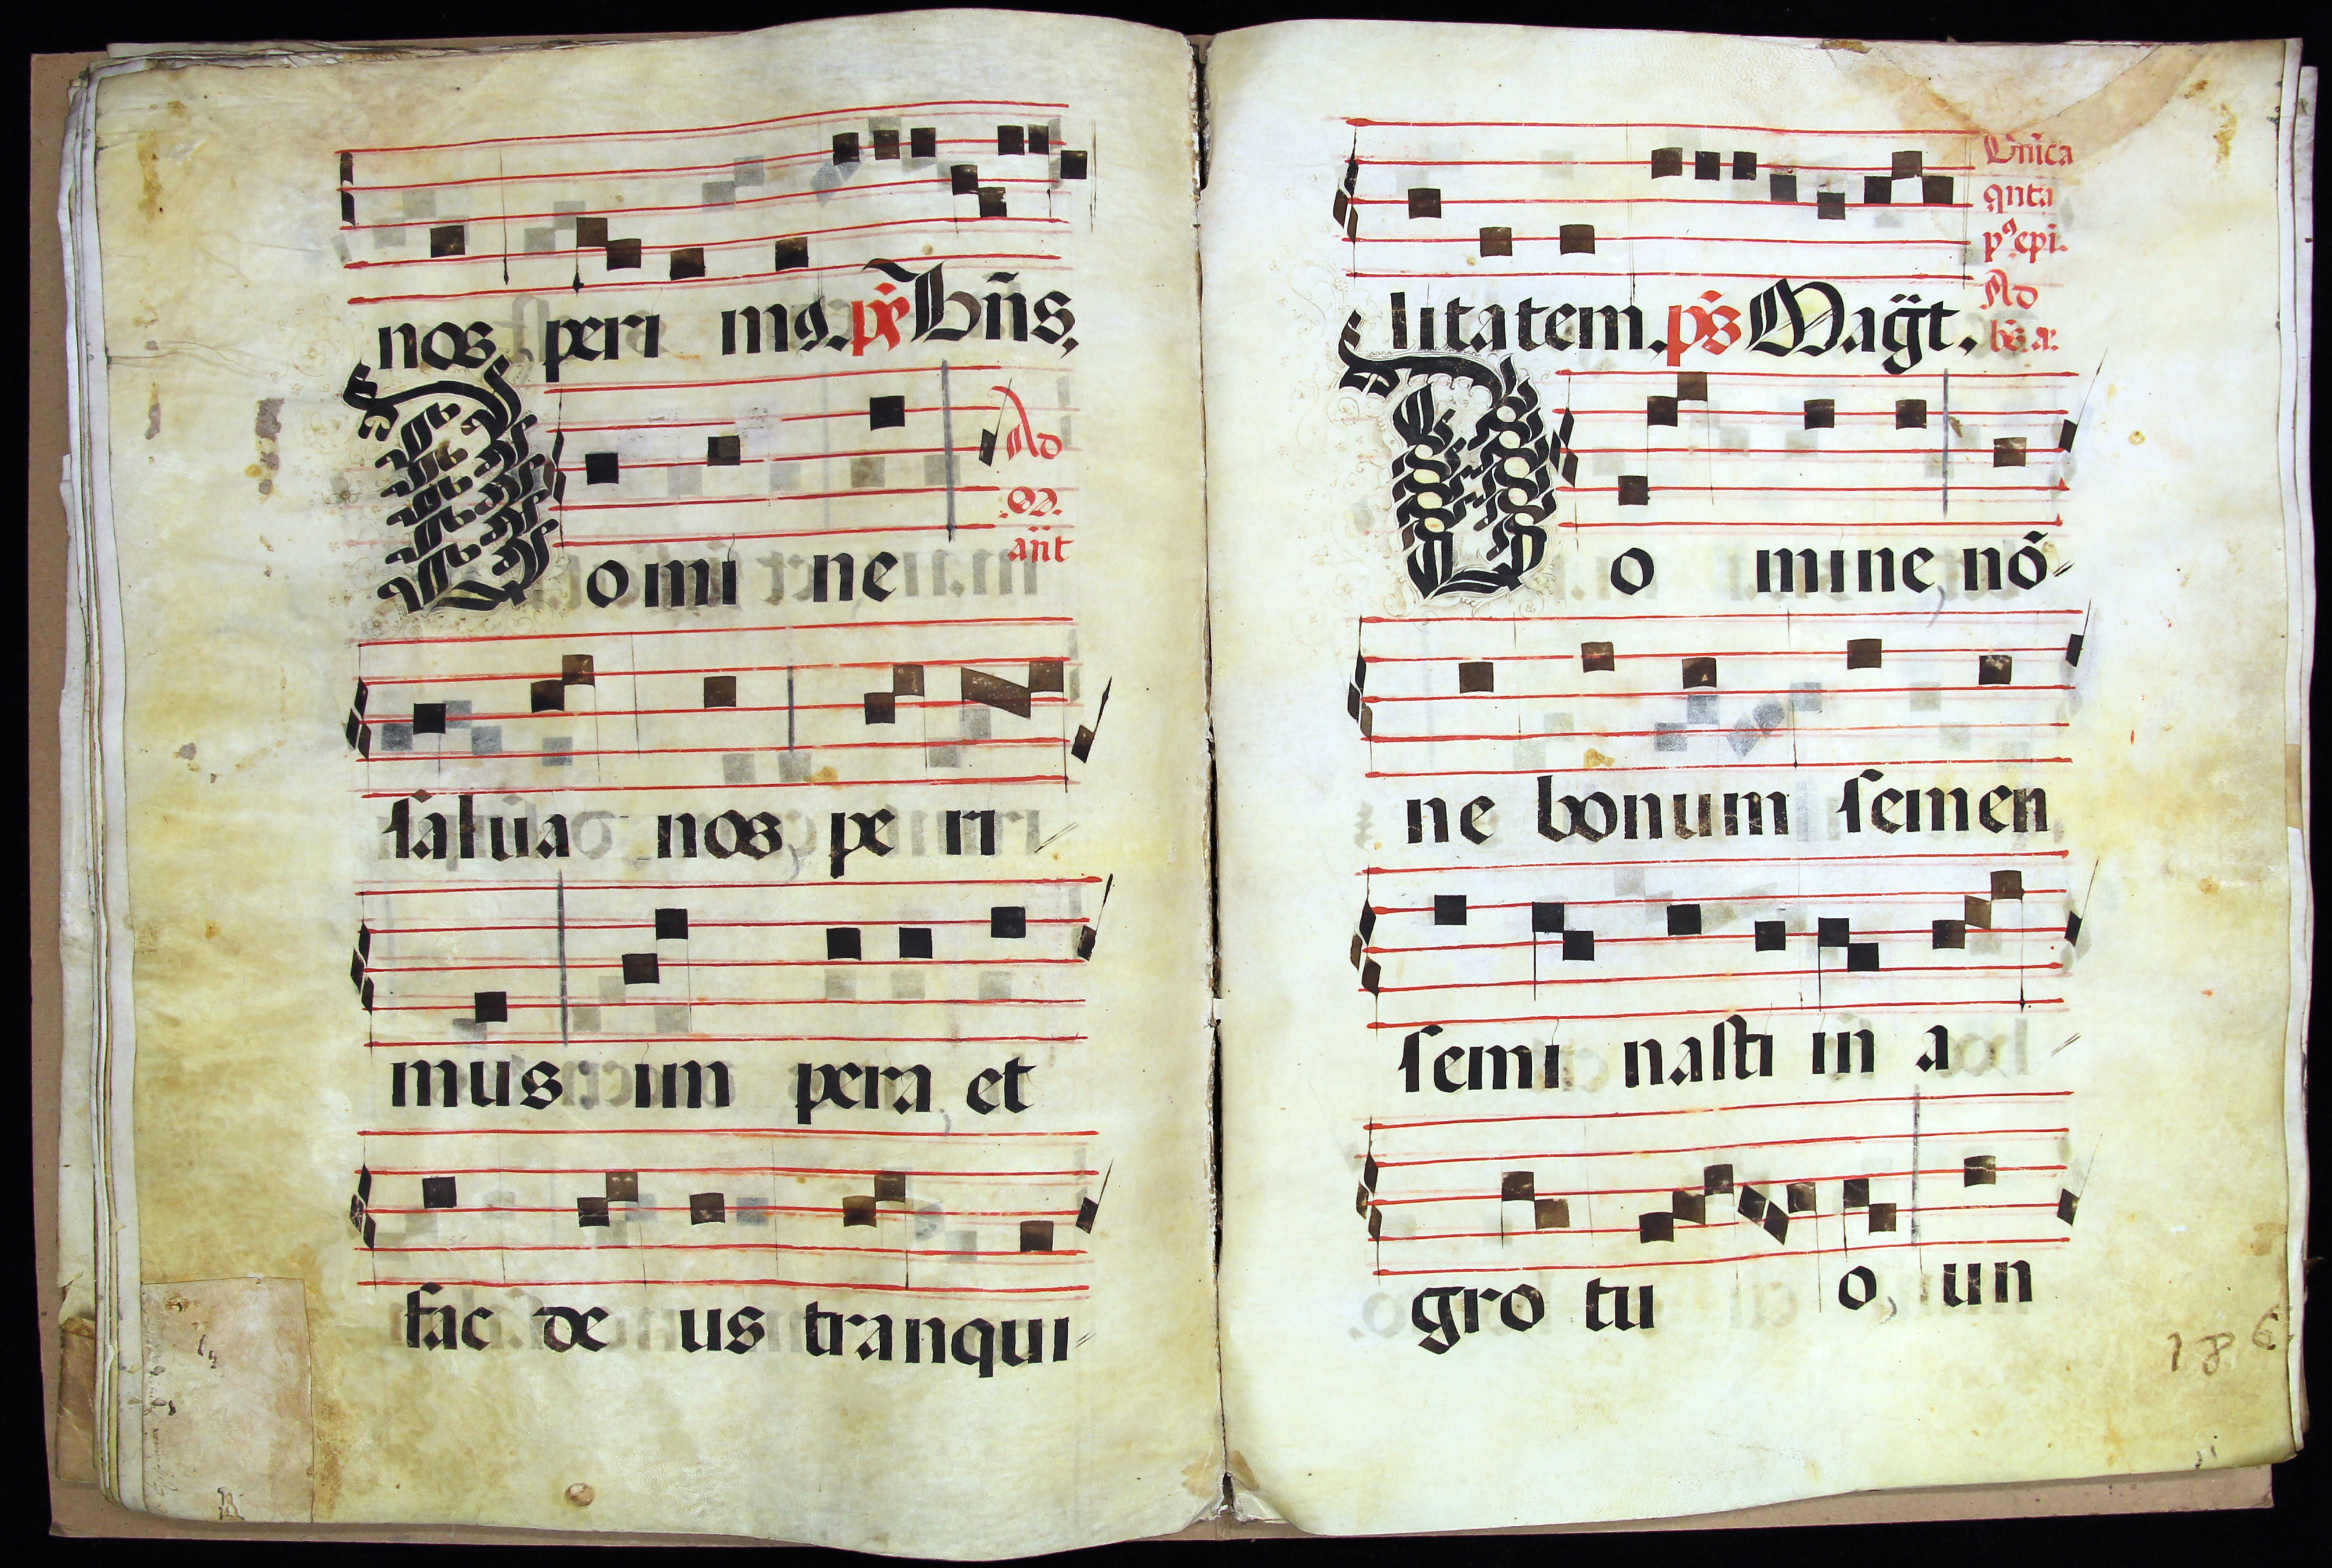 nos peri mꝰ. p̃s Bñs,
Domi ne
Ad
.M.
añt
salua nos, pe ri-
mus: im pera et
fac de us tranqui-
litatem. p̃s Mag̃t.
Dñica
qnta
pꝰ epi.
Ad
bs̃ a.
Do mine, nõ-
ne bonum semen
semi nasti in a-
gro tu o, un
186